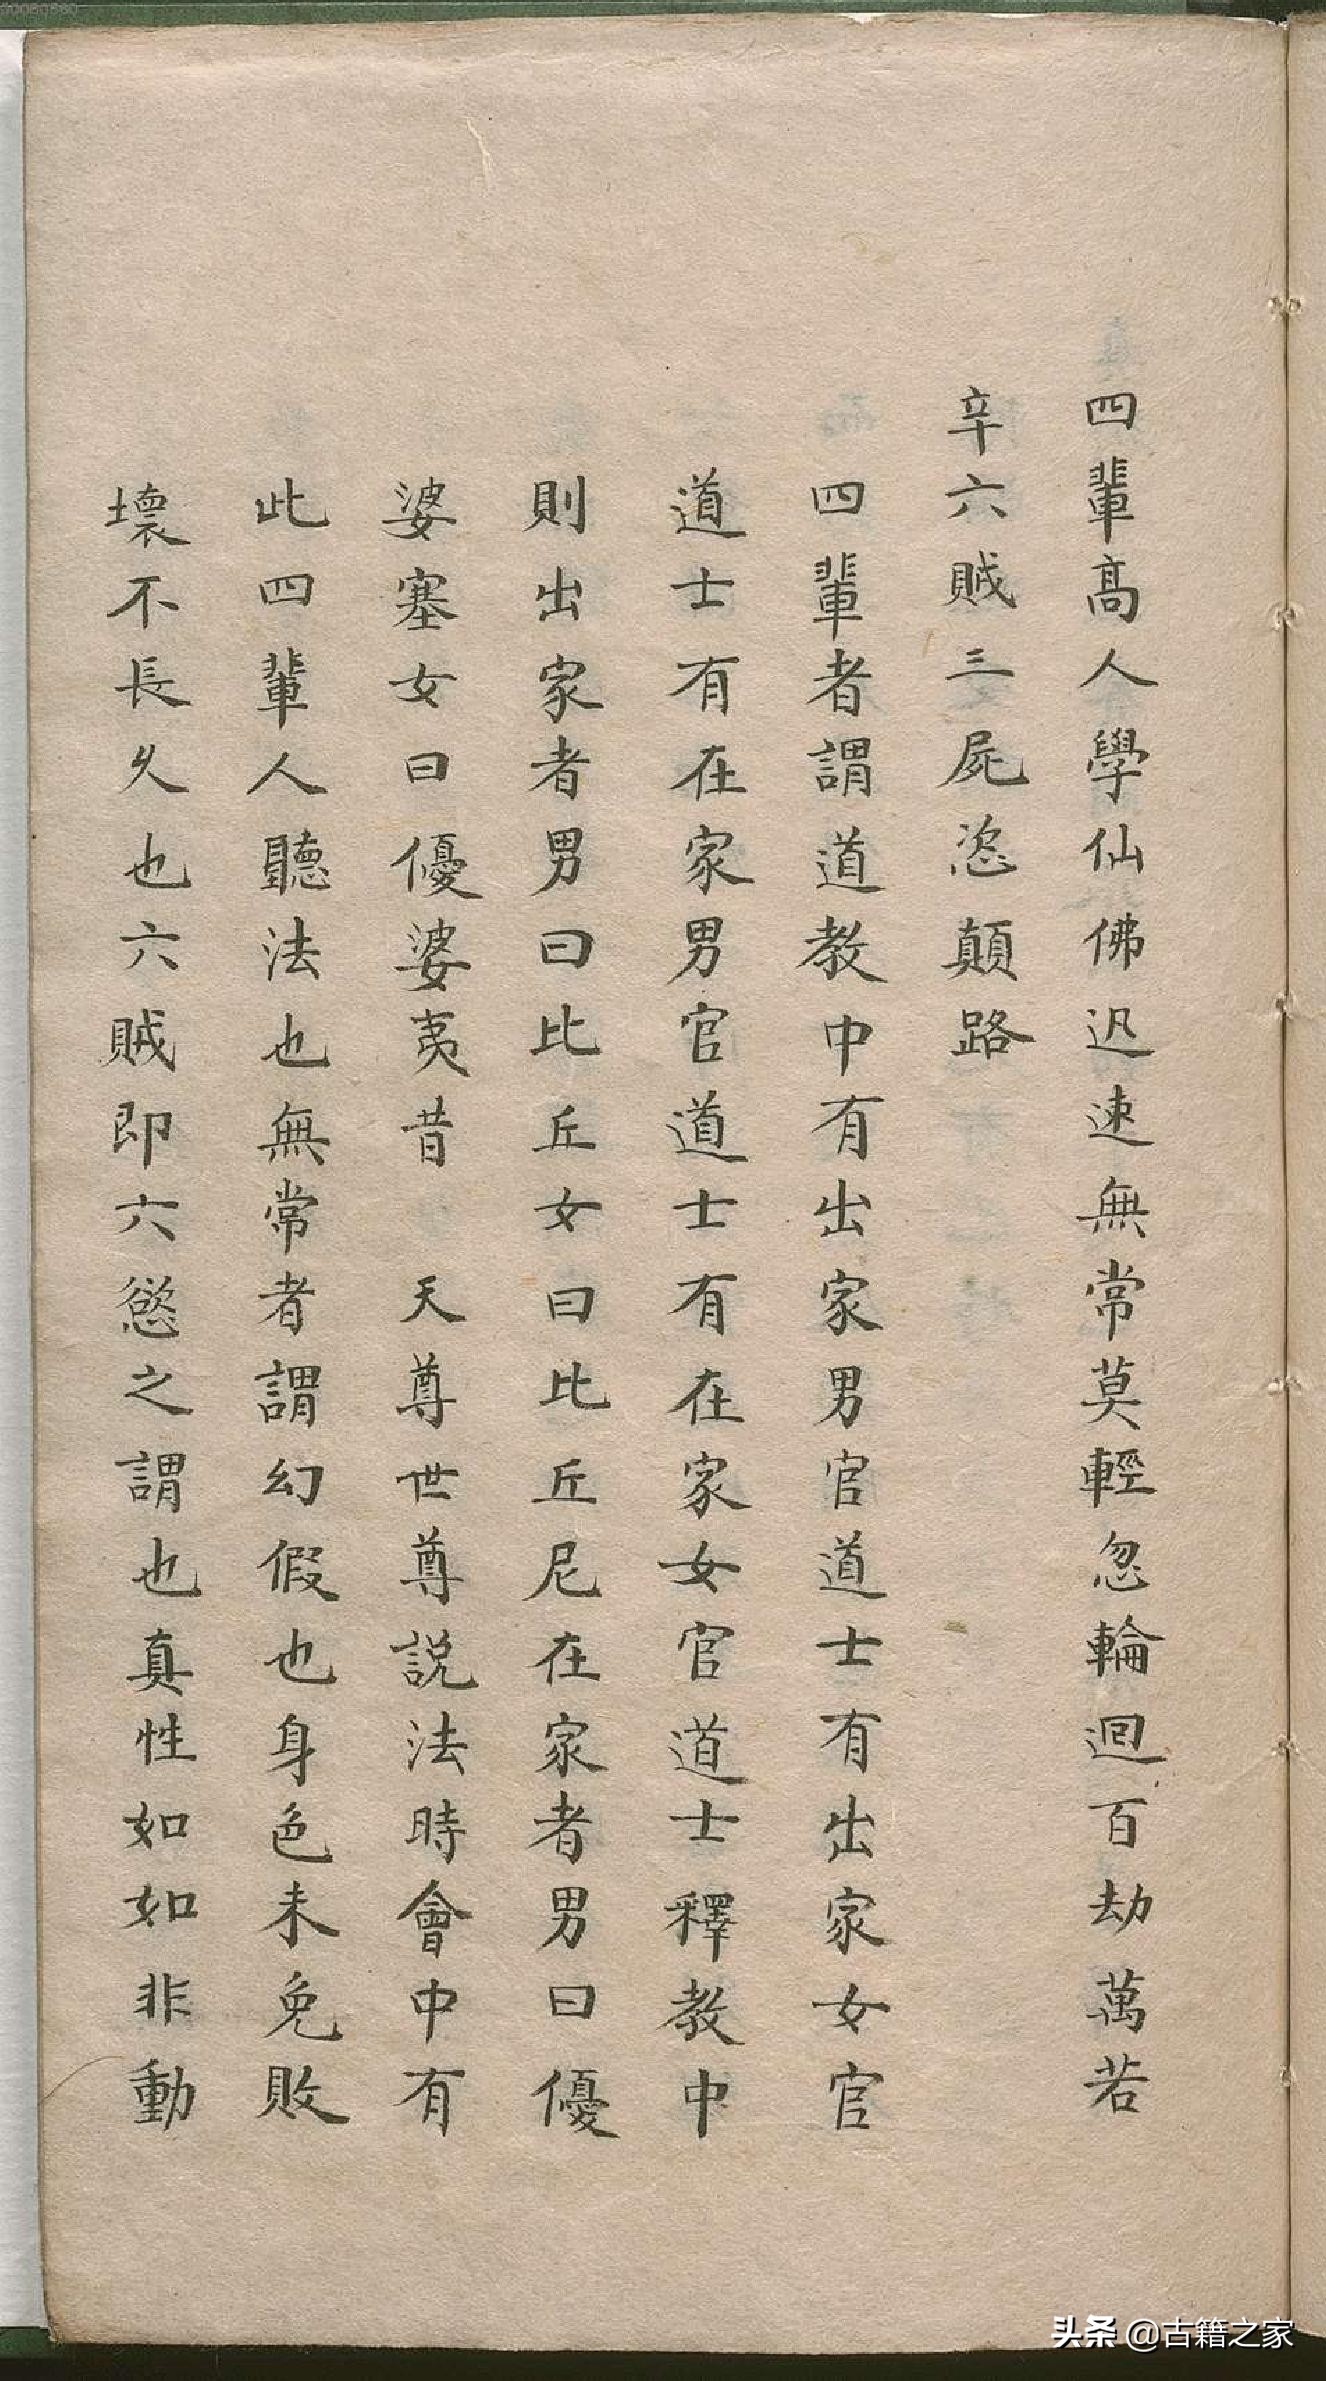 四輩髙人學仙佛迅速無常莫輕忽輪迴百劫萬若
辛六賊三屍恣顛路
四輩者謂道教中有出家男官道士有出家女官
道士有在家男官道士有在家女官道士釋教中
則出家者男曰比丘女曰比丘尼在家者男曰優
婆塞女曰優婆夷昔 天尊世尊説法時會中有
此四輩人聽法也無常者謂幻假也身色未免敗
壞不長久也六賊即六慾之謂也真性如如非動
头条 @古籍之家